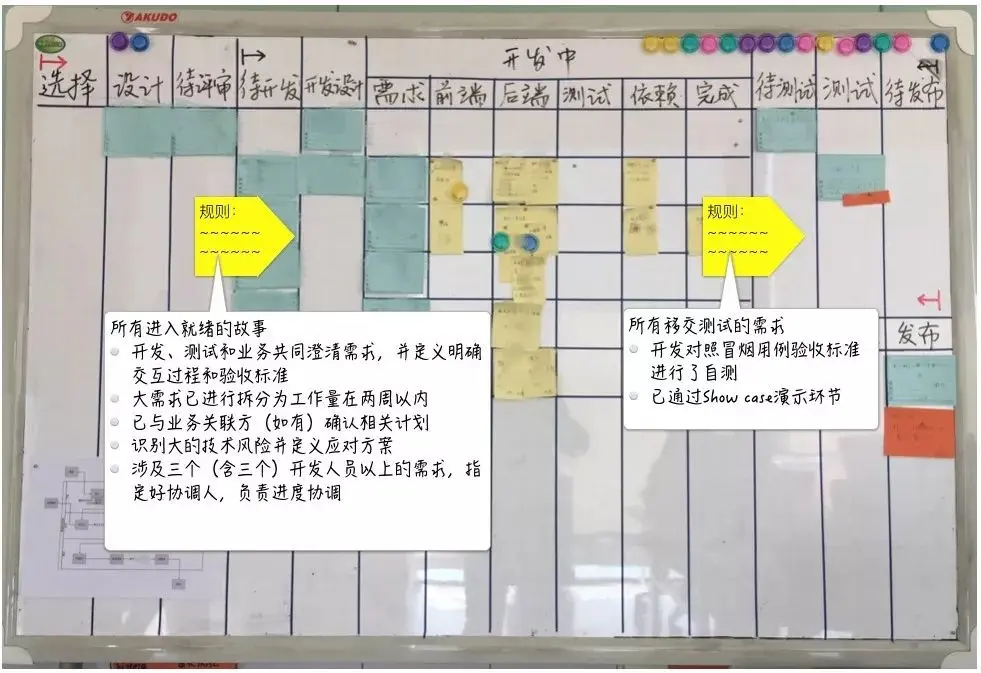 AKUDO
开发中
选择 设计 待评审 待开发 开发设计 需求 前端 后端 测试 依赖 完成 待测试 测试 待发布
规则：
~~~~~~
~~~~~~
规则：
~~~~~~
~~~~~~
所有进入就绪的故事
开发、测试和业务共同澄清需求，并定义明确
交互过程和验收标准
大需求已进行拆分为工作量在两周以内
已与业务关联方（如有）确认相关计划
识别大的技术风险并定义应对方案
涉及三个（含三个）开发人员以上的需求，指
定好协调人，负责进度协调
所有移交测试的需求
开发对照冒烟用例验收标准
进行了自测
已通过Show case演示环节
发布